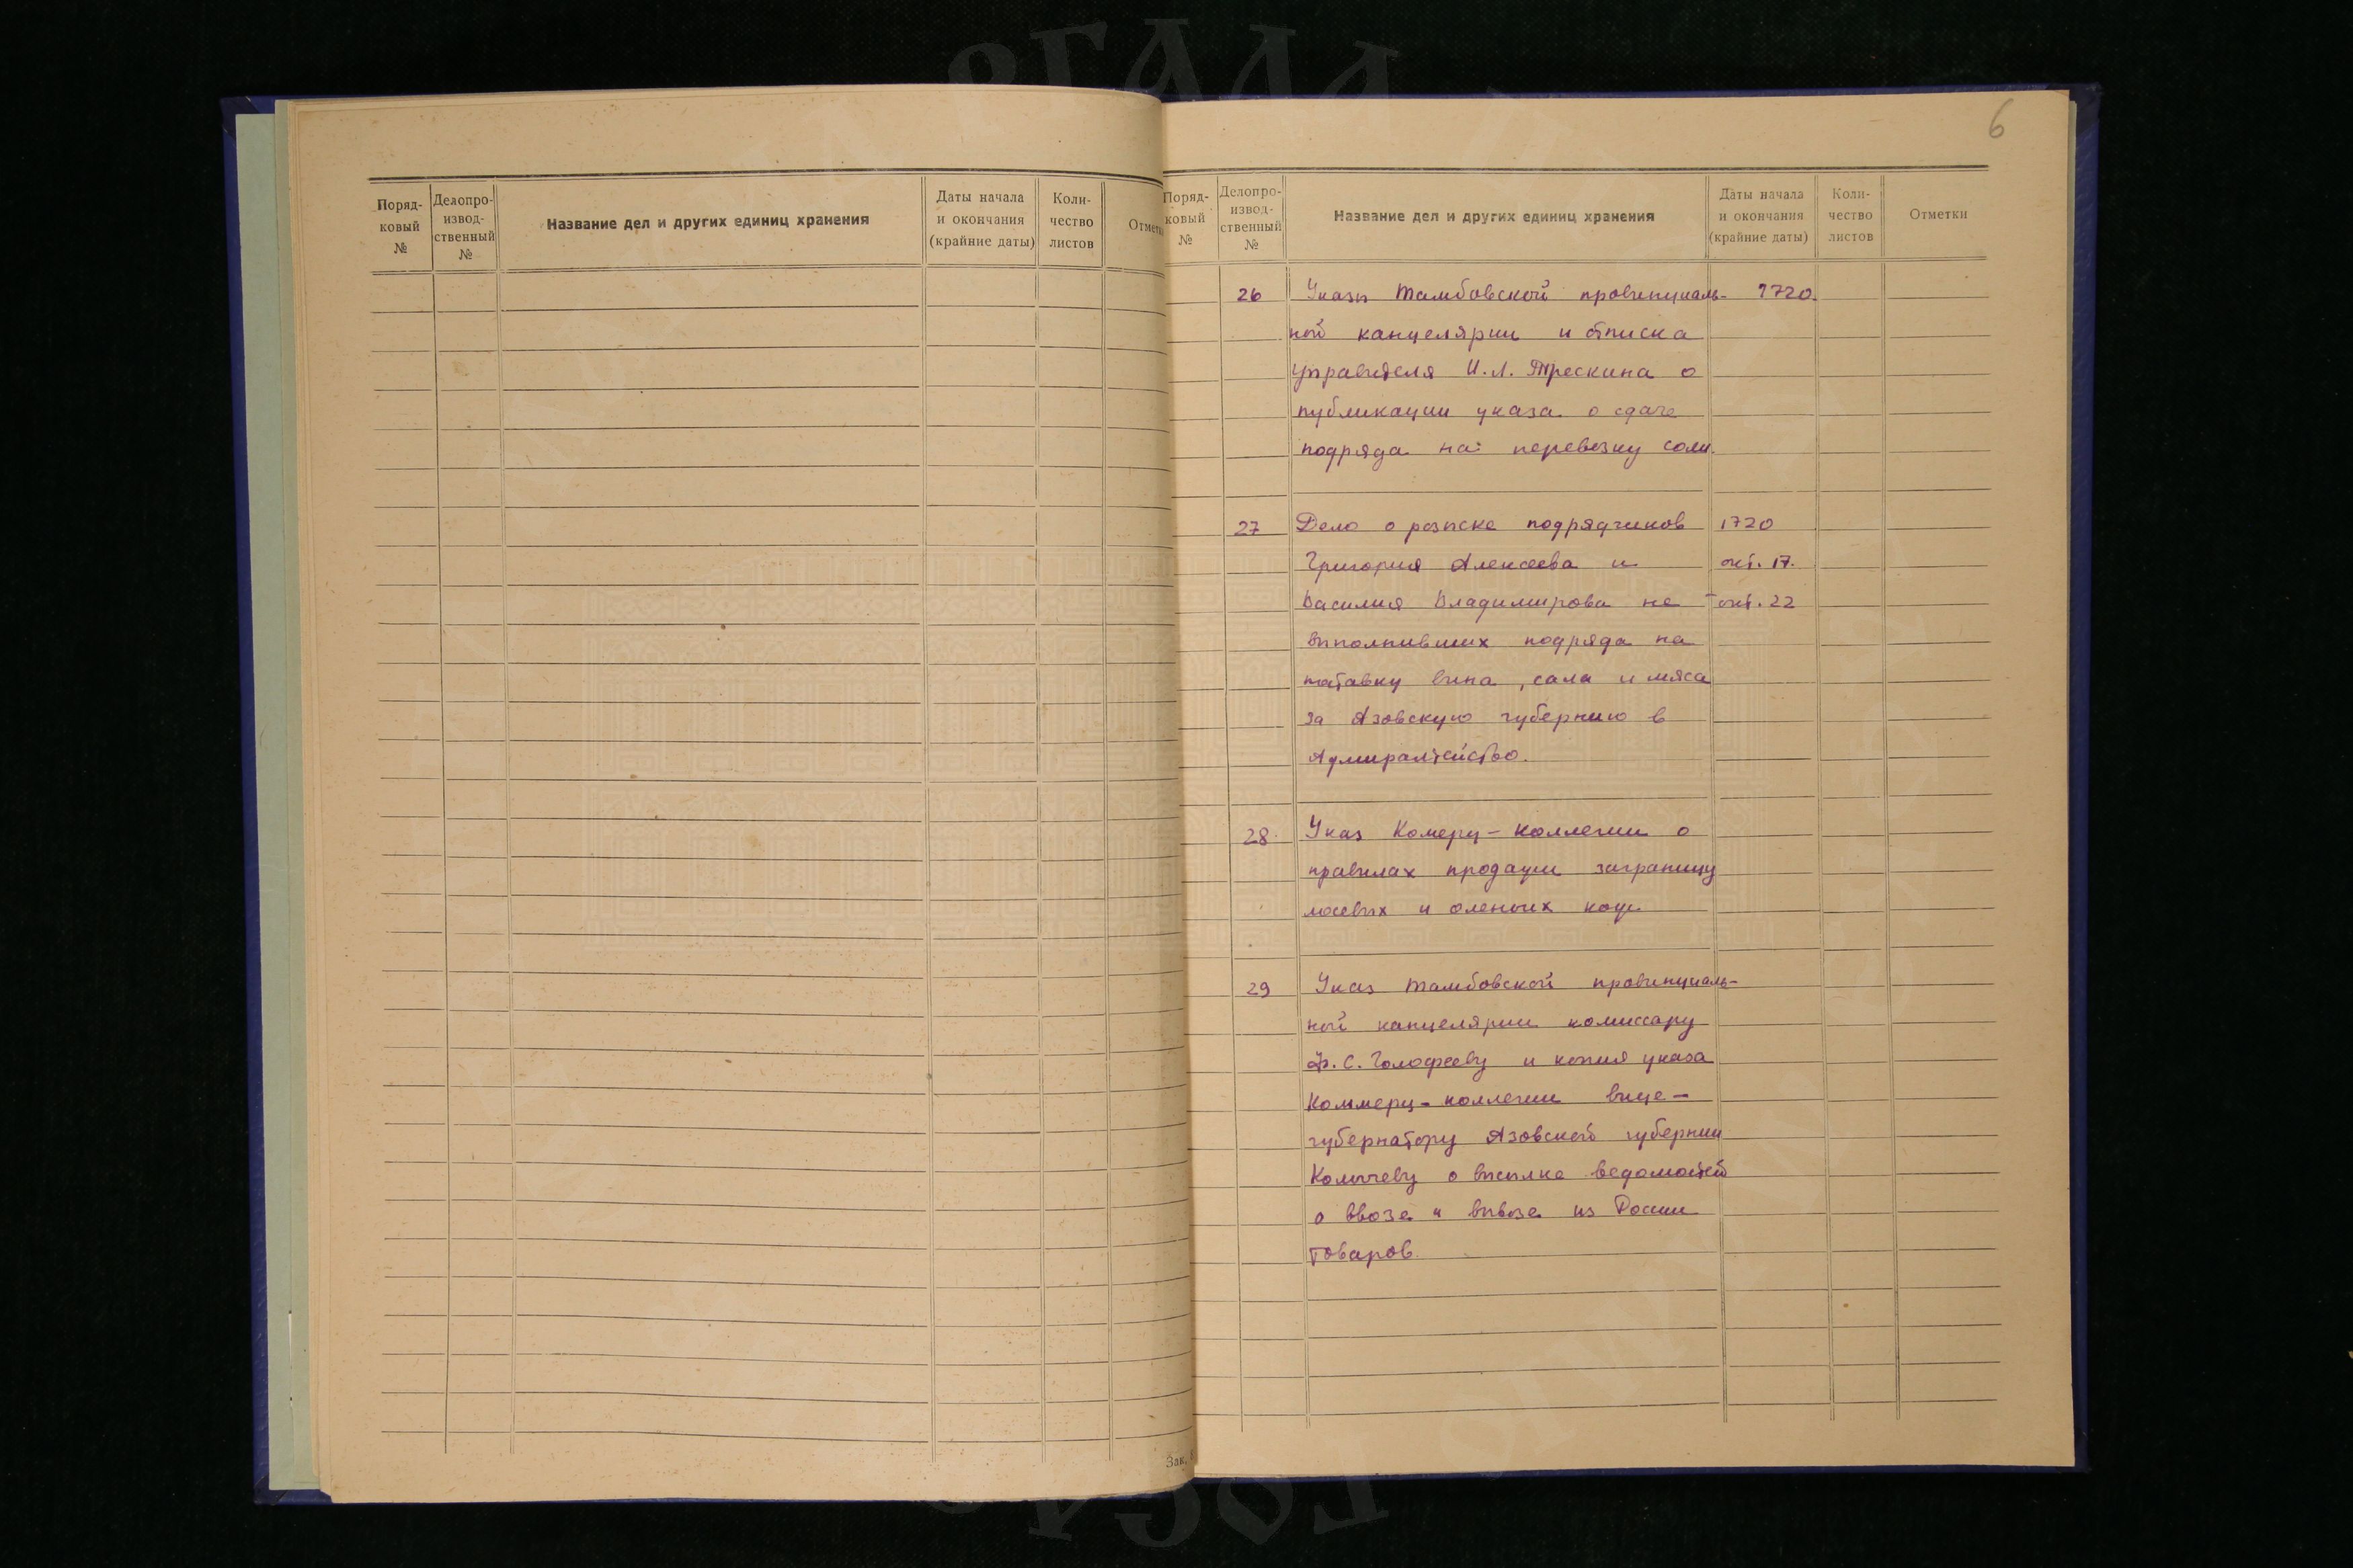 6
Поряд-
ковый
№
Делопро-
извод-
ственный
№
Название дел и других единиц хранения
Даты начала
и окончания
(крайние даты)
Коли-
чество
листов
Отметк
Поряд-
ковый
№
Делопро-
извод-
ственный
№
Название дел и других единиц хранения
Даты начала
и окончания
(крайние даты)
Коли-
чество
листов
Отметки
26 Указы Тамбовской провинциаль- 1720.
ной канцелярии и отписка
управителя И. Л. Трескина о
публикации указа о сдаче
подряда на перевозку соли.
27 Дело о розыске подрядчиков 1720
Григория Алексеева и окт. 17.
Василия Владимирова не - окт. 22
выполнивших подряда на
поставку вина, сала и мяса
за Азовскую губернию в
Адмиралтейство.
28. Указ Комерц-коллегии о
правилах продации заграницу
лосевых и оленьих кож
29 Указ Тамбовской провинциаль-
ной канцелярии комиссару
Ф. С. Голофееву и копия указа
Коммерц-коллегии вице-
губернатору Азовской губернии
Колычеву о высылке ведомостей
о ввозе и вывозе из России
товаров.
Зак.
РГАДА